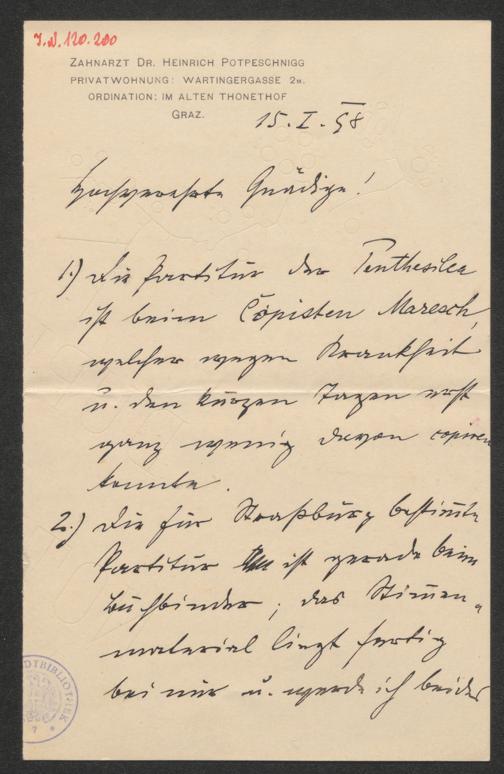 J.N. 120.200
ZAHNARZT DR. HEINRICH POTPESCHNIGG
PRIVATWOHNUNG: WARTINGERGASSE 2
ORDINATION: IM ALTEN THONETHOF
GRAZ.
15. I. 98
Hochverehrte Gnädige!
1.) Die Partitur der Penthesilea
ist beim Copisten Maresch,
welcher wegen Krankheit
u. den kurzen Tagen erst
ganz wenig davon copiren
konnte.
2.) Die für Straßburg bestim̅te
Partitur ist gerade beim
Buchbinder; das Stim̅en-
material liegt fertig
bei mir u. werde ich beides
STADTBIBLIOTHEK